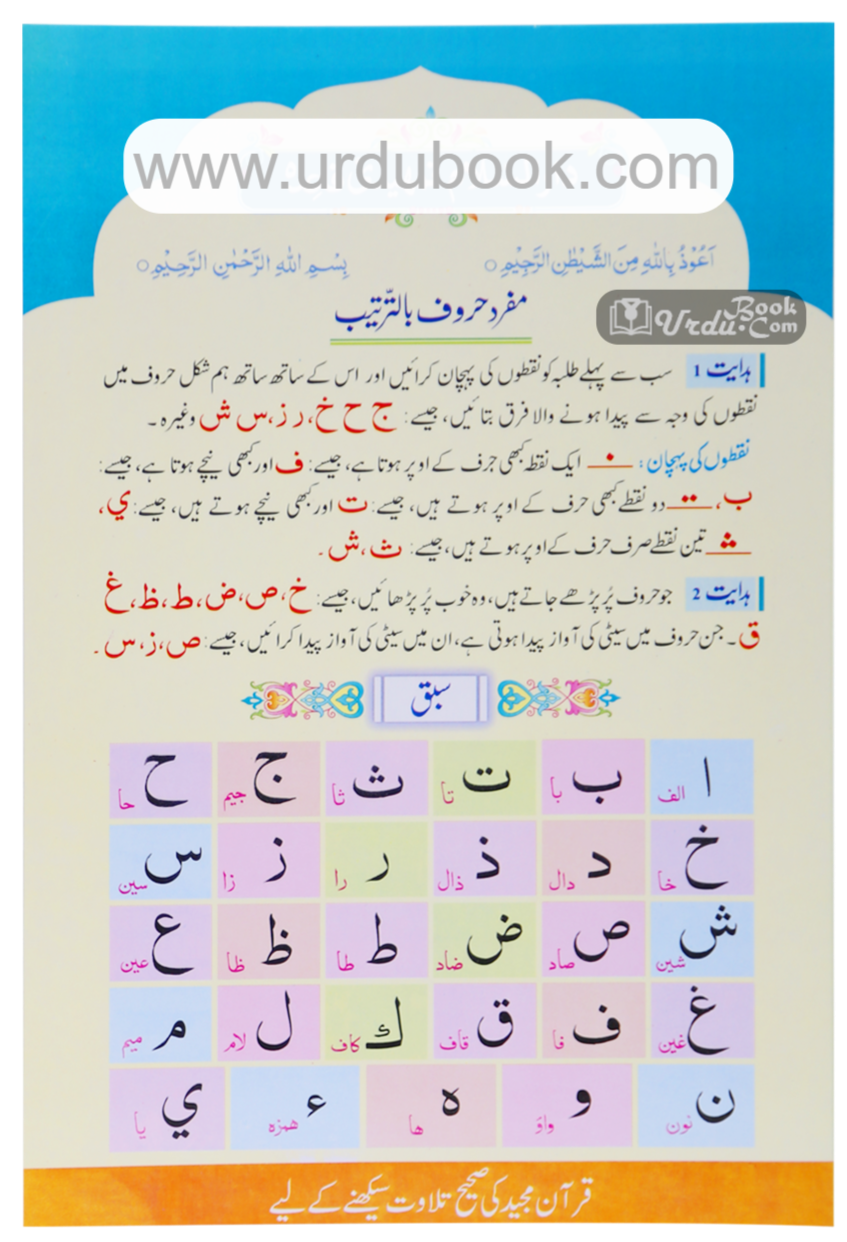 www.urdubook.com
اَعُوْذُ بِاللّٰهِ مِنَ الشَّيْطٰنِ الرَّجِيْمِ ○ بِسْمِ اللّٰهِ الرَّحْمٰنِ الرَّحِيْمِ ○
Urdu Book.Com
مفرد حروف بالتّرتیب
ہدایت 1 سب سے پہلے طلبہ کو نقطوں کی پہچان کرائیں اور اس کے ساتھ ساتھ ہم شکل حروف میں
نقطوں کی وجہ سے پیدا ہونے والا فرق بتائیں، جیسے: ج ح خ، ر ز، س ش وغیرہ۔
نقطوں کی پہچان: ایک نقطہ کبھی حرف کے اوپر ہوتا ہے، جیسے: ف اور کبھی نیچے ہوتا ہے، جیسے:
ب، دو نقطے کبھی حرف کے اوپر ہوتے ہیں، جیسے: ت اور کبھی نیچے ہوتے ہیں، جیسے: ي،
تین نقطے صرف حرف کے اوپر ہوتے ہیں، جیسے: ث، ش۔
ہدایت 2 جو حروف پُر پڑھے جاتے ہیں، وہ خوب پُر پڑھائیں، جیسے: خ، ص، ض، ط، ظ، غ
ق۔ جن حروف میں سیٹی کی آواز پیدا ہوتی ہے، ان میں سیٹی کی آواز پیدا کرائیں، جیسے: ص، ز، س۔
سبق
ا الف ب با ت تا ث ثا ج جیم ح حا
خ خا د دال ذ ذال ر را ز زا س سین
ش شین ص صاد ض ضاد ط طا ظ ظا ع عین
غ غین ف فا ق قاف ك کاف ل لام م میم
ن نون و واؤ ہ ھا ء ھمزہ ي یا
قرآن مجید کی صحیح تلاوت سیکھنے کے لیے